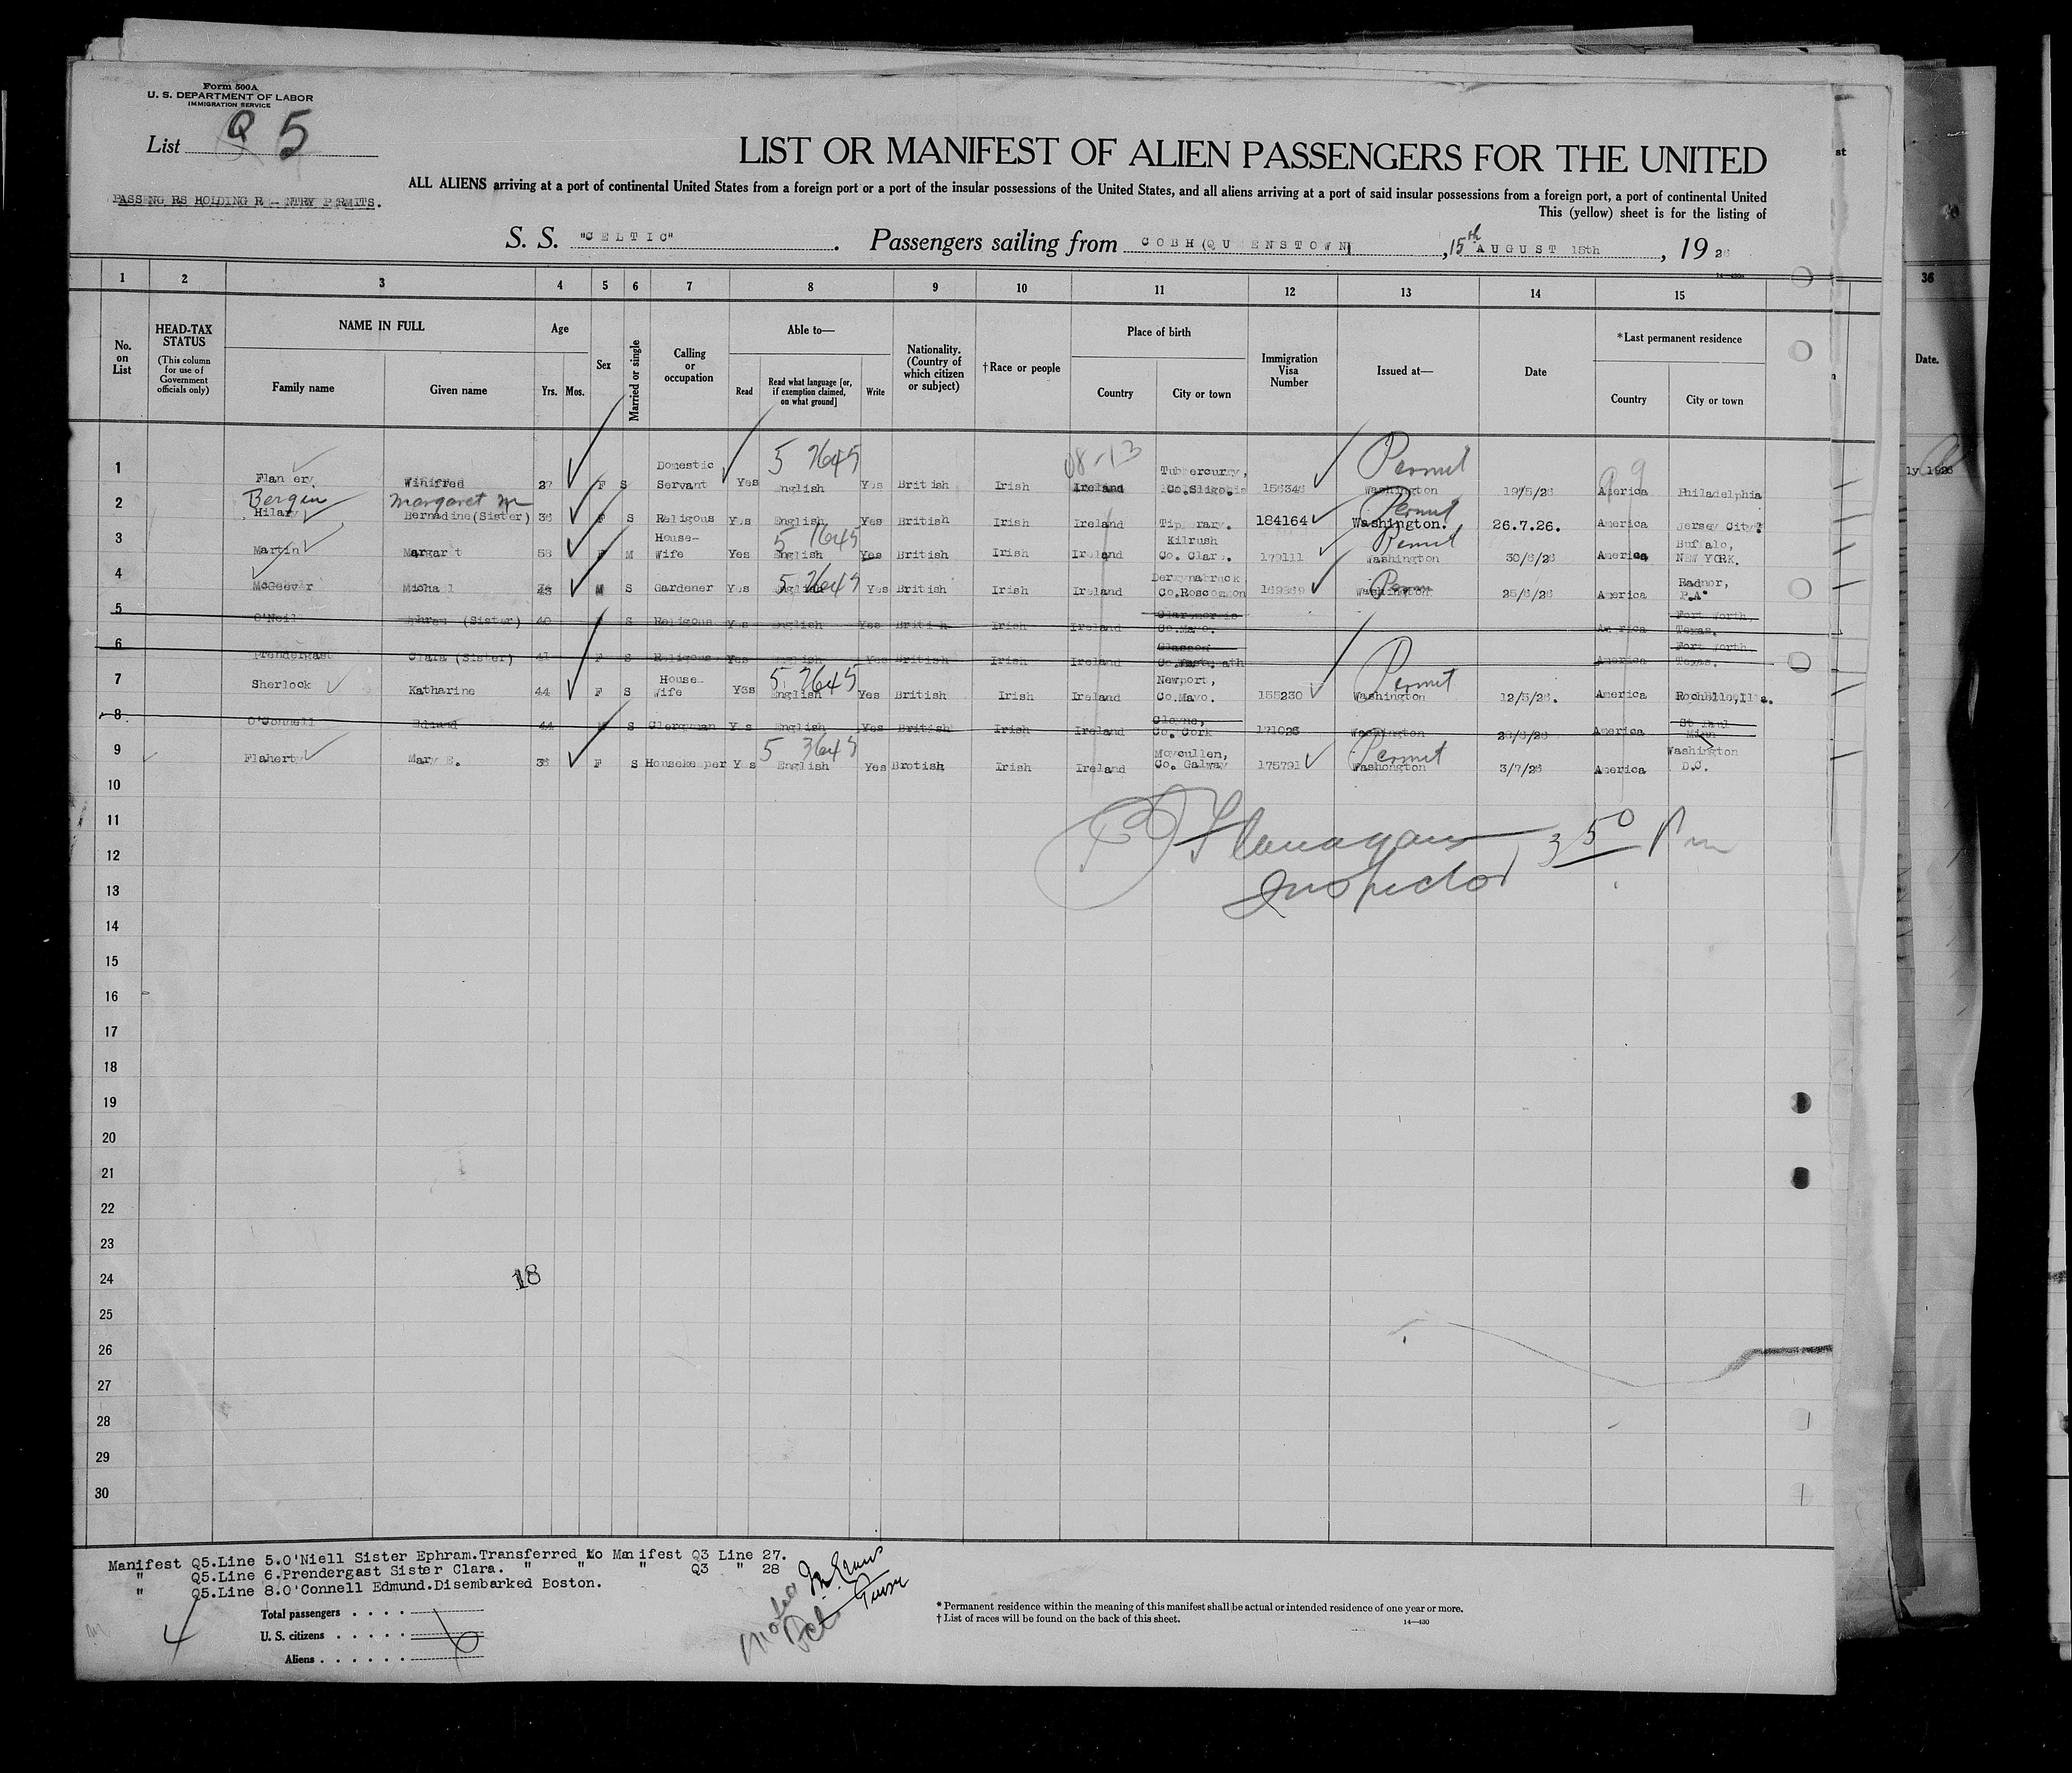 Form 500A
U. S. DEPARTMENT OF LABOR
IMMIGRATION SERVICE
List Q 5
PASSENG RS HOLDING R - NTRY P RMITS.
LIST OR MANIFEST OF ALIEN PASSENGERS FOR THE UNITED
ALL ALIENS arriving at a port of continental United States from a foreign port or a port of the insular possessions of the United States, and all aliens arriving at a port of said insular possessions from a foreign port, a port of continental United
This (yellow) sheet is for the listing of
S. S. "CELTIC". Passengers sailing from COBH (QU ENSTOWN), 15th AUGUST 15th, 19 26
1 2 3 4 5 6 7 8 9 10 11 12 13 14 15
No. on List
HEAD-TAX STATUS
(This column for use of Government officials only)
NAME IN FULL
Family name Given name
Age
Yrs. Mos.
Sex
Married or single
Calling or occupation
Able to—
Read
Read what language [or, if exemption claimed, on what ground]
Write
Nationality. (Country of which citizen or subject)
†Race or people
Place of birth
Country City or town
Immigration Visa Number
Issued at—
Date
*Last permanent residence
Country City or town
1 Flan ery, Winifred 27 F S Domestic Servant Yes English Yes British Irish Ireland Tubbercurry, Co.Sligo. 156346 Permit Washington 19/5/26 America Philadelphia
Bergin Margaret M
2 Hilary Bernadine(Sister) 36 F S Religous Yes English Yes British Irish Ireland Tip rary. 184164 Permit Washington. 26.7.26. America Jersey City
3 Martin Margar t 58 F M House-Wife Yes English Yes British Irish Ireland Kilrush Co. Clar . 179111 Permit Washington 30/6/26 America Buffalo, NEW YORK.
4 McGeever Micha l M S Gardener Yes English Yes British Irish Ireland Co.Roscommon Washington 25/6/26 America Radnor, P.A.
5 O'Neill Ephrem (Sister) 40 F S Religous Yes English Yes British Irish Ireland Claremorris Co.Mayo. Am rica Fort Worth, Texas.
6 Prendergast Clara (Sister) 41 F S Religous Yes English Yes British Irish Ireland Glasson Co. ath America Fort Worth Texas.
7 Sherlock Katharine 44 F S House-Wife Yes English Yes British Irish Ireland Newport, Co.Mayo. 155230 Permit Washington 12/5/26. America Rochelle,Ills.
8 O'Connell Edmund 44 M S Clergyman Yes English Yes British Irish Ireland Cloyne, Co. Cork 171026 Washington America St Paul Minn
9 Flaherty Mary E. 36 F S Housekeeper Yes English Yes Brotish Irish Ireland Moycullen, Co. Galway 175791 Permit Washongton 3/7/26 America Washington D.C.
10
11
12
13
14
15
16
17
18
19
20
21
22
23
24
25
26
27
28
29
30
Flanagan 3 50 Pm
Inspector
18
Manifest Q5.Line 5.O'Niell Sister Ephram.Transferred to Manifest Q3 Line 27.
" Q5.Line 6.Prendergast Sister Clara. " " " Q3 " 28
" Q5.Line 8.O'Connell Edmund.Disembarked Boston.
Total passengers . . . .
U. S. citizens . . . . .
Aliens . . . . . .
* Permanent residence within the meaning of this manifest shall be actual or intended residence of one year or more.
† List of races will be found on the back of this sheet.
14—430
36
Date.